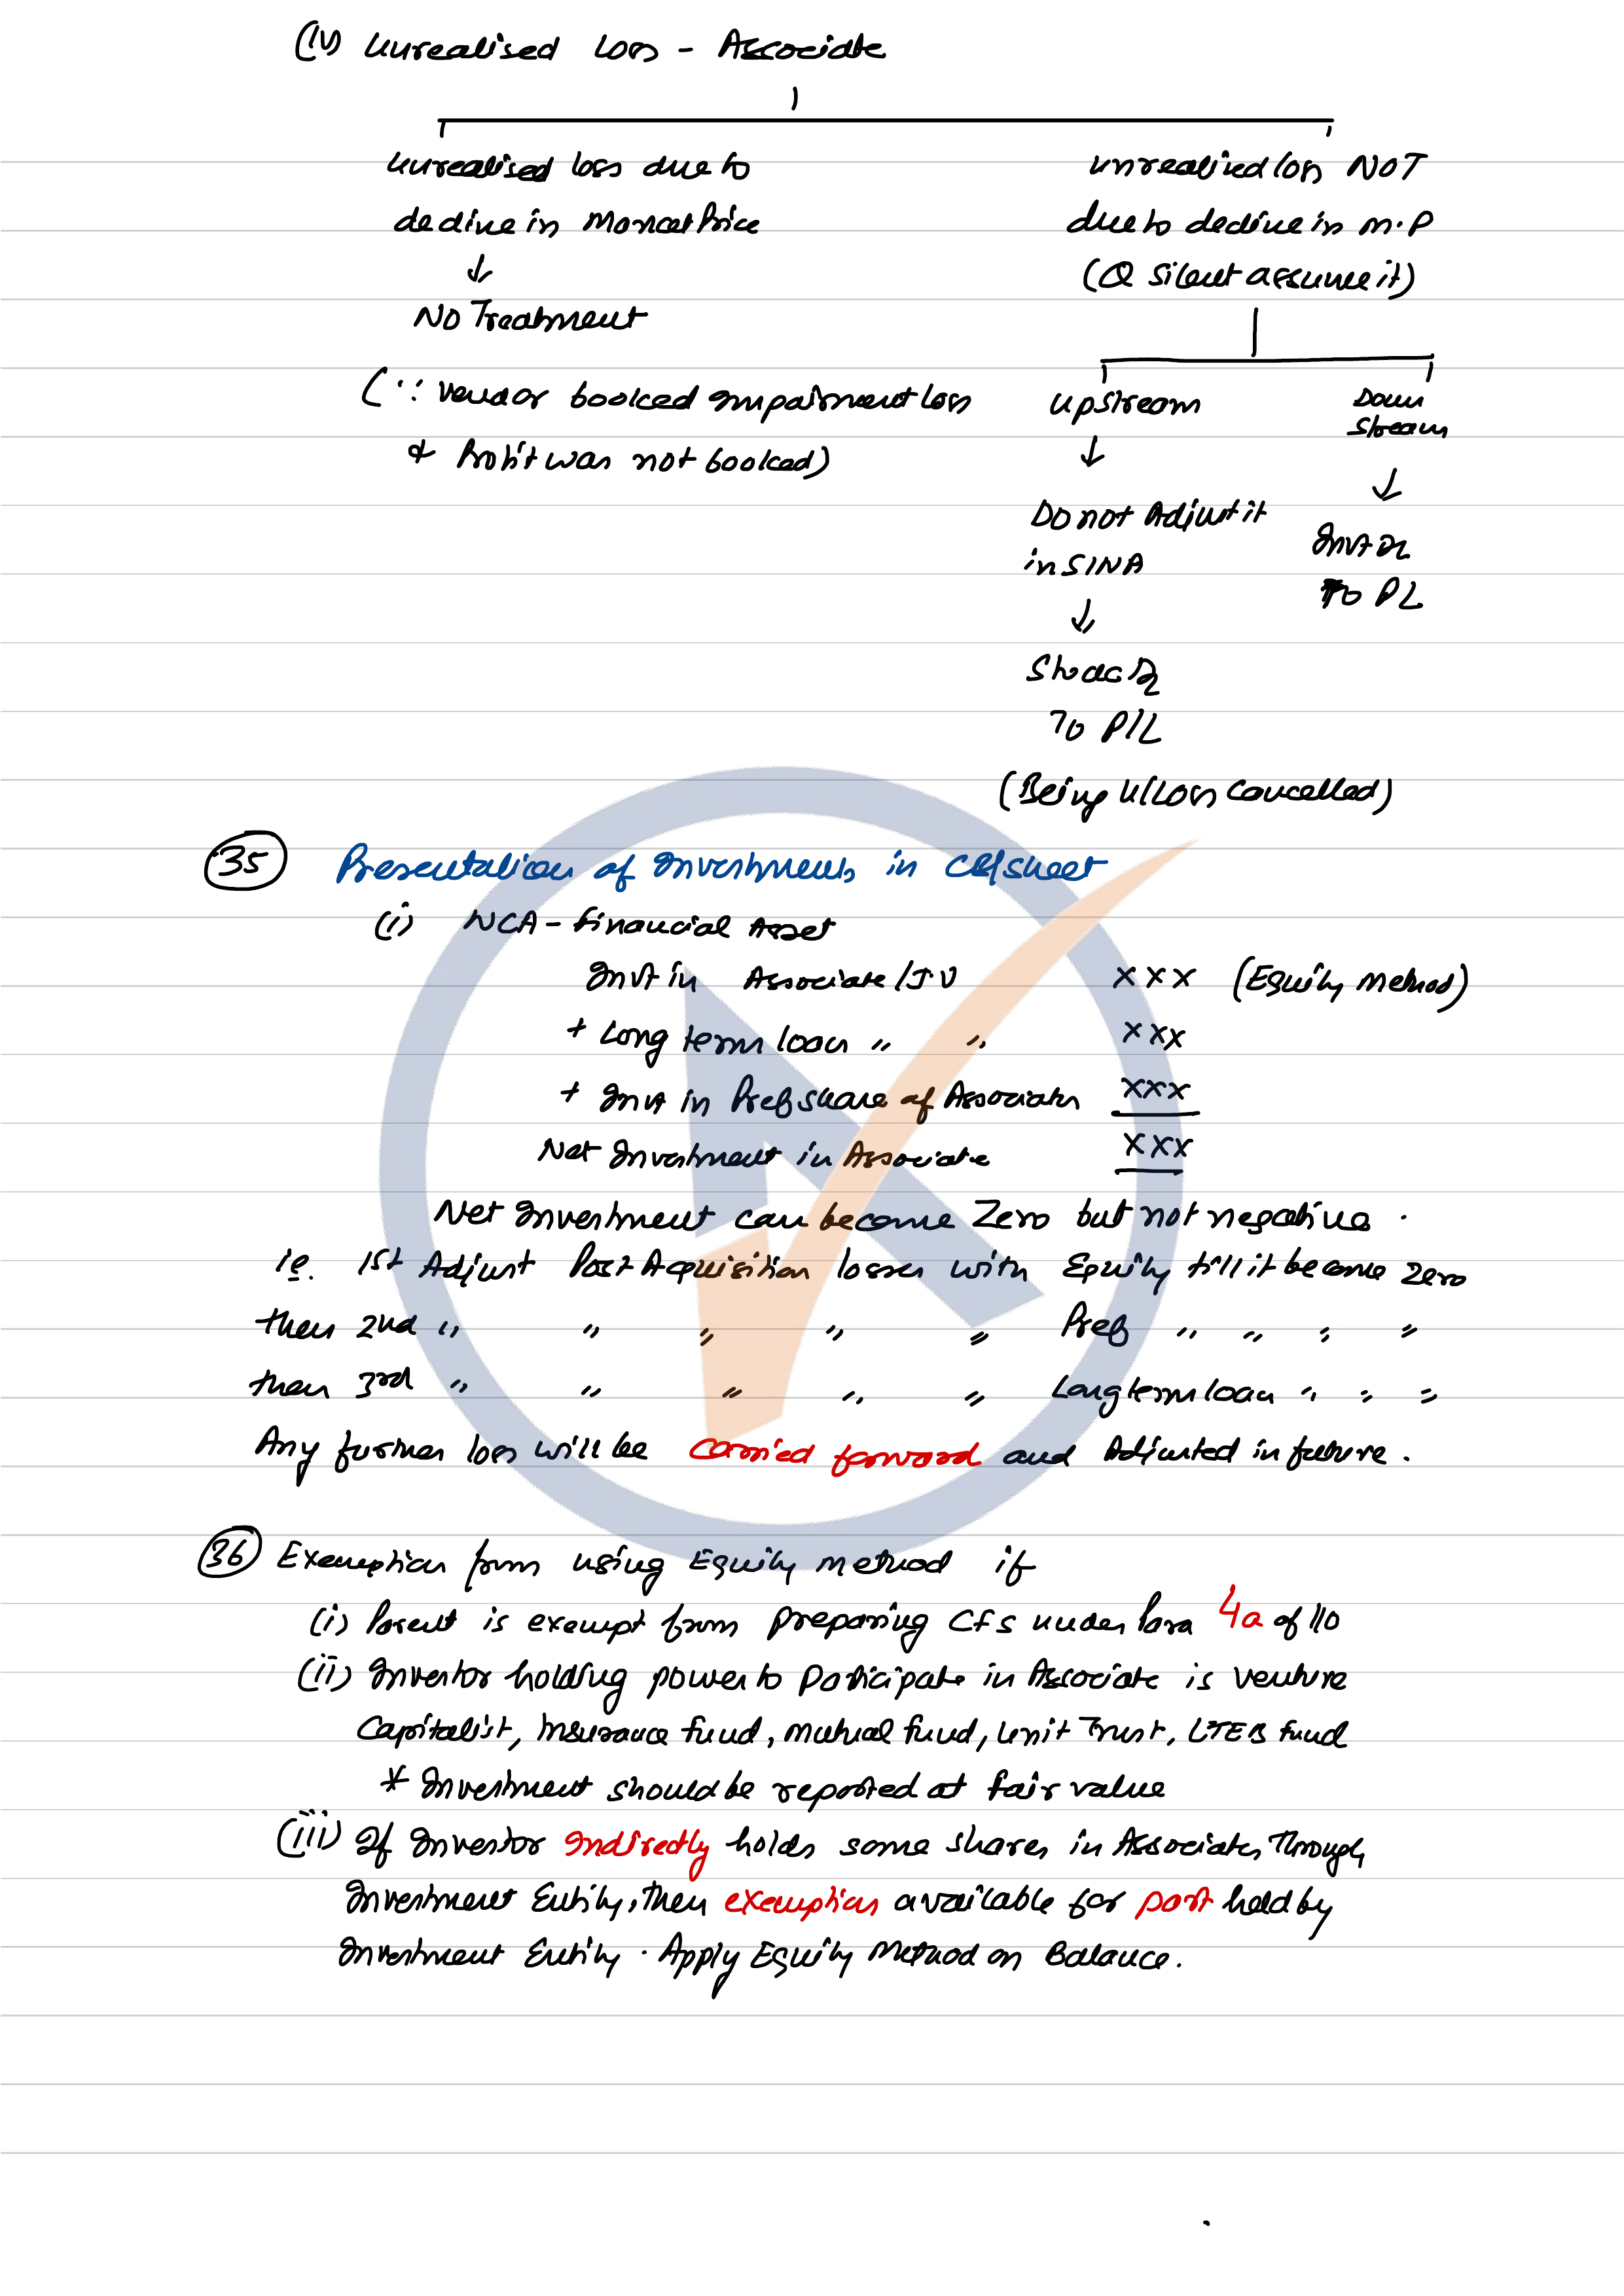 (iv) Unrealised Loss - Associate
Unrealised loss due to
decline in Market Price
↓
No Treatment
(∵ Vendor booked Impairment Loss
& Profit was not booked)
Unrealised loss NOT
due to decline in M.P
(Q Silent assume it)
Upstream
↓
Do not Adjust it
in SINA
↓
Stock Dr
To P/L
(Being U/Loss Cancelled)
Down
Stream
↓
Invt Dr
To PL
35 Presentation of Investments in CB/sheet
(i) NCA - Financial Asset
Invt in Associate/JV xxx (Equity Method)
+ Long term loan " " xxx
+ Invt in Pref share of Associates xxx
Net Investment in Associate xxx
Net Investment can become Zero but not negative.
ie. 1st Adjust Post Acquisition losses with Equity till it become zero
then 2nd " " " " " Pref " " " "
then 3rd " " " " " Long term loan " " "
Any further loss will be carried forward and Adjusted in future.
36 Exemption from using Equity Method if
(i) Parent is exempt from preparing CFS under Para 4a of 110
(ii) Investor holding power to Participate in Associate is Venture
Capitalist, Insurance fund, Mutual fund, Unit Trust, LTEB Fund
* Investment should be reported at fair value
(iii) If Investor Indirectly holds some shares in Associates, Through
Investment Entity, then exemption available for part held by
Investment Entity. Apply Equity Method on Balance.